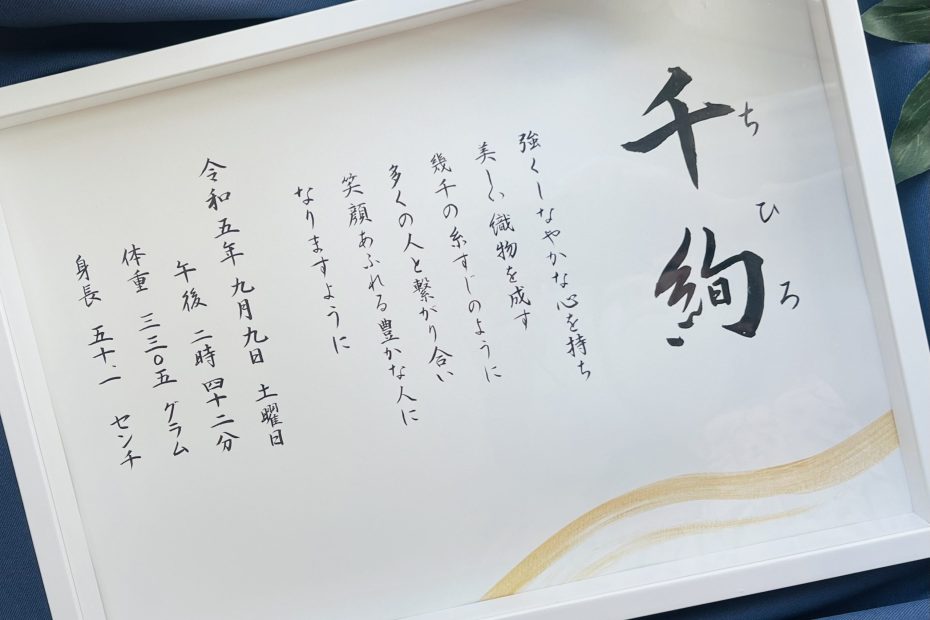 千絢
ちひろ
強くしなやかな心を持ち
美しい織物を成す
幾千の糸すじのように
多くの人と繋がり合い
笑顔あふれる豊かな人に
なりますように
令和五年 九月九日 土曜日
午後 二時四十二分
体重 三三〇五 グラム
身長 五十.一 センチ